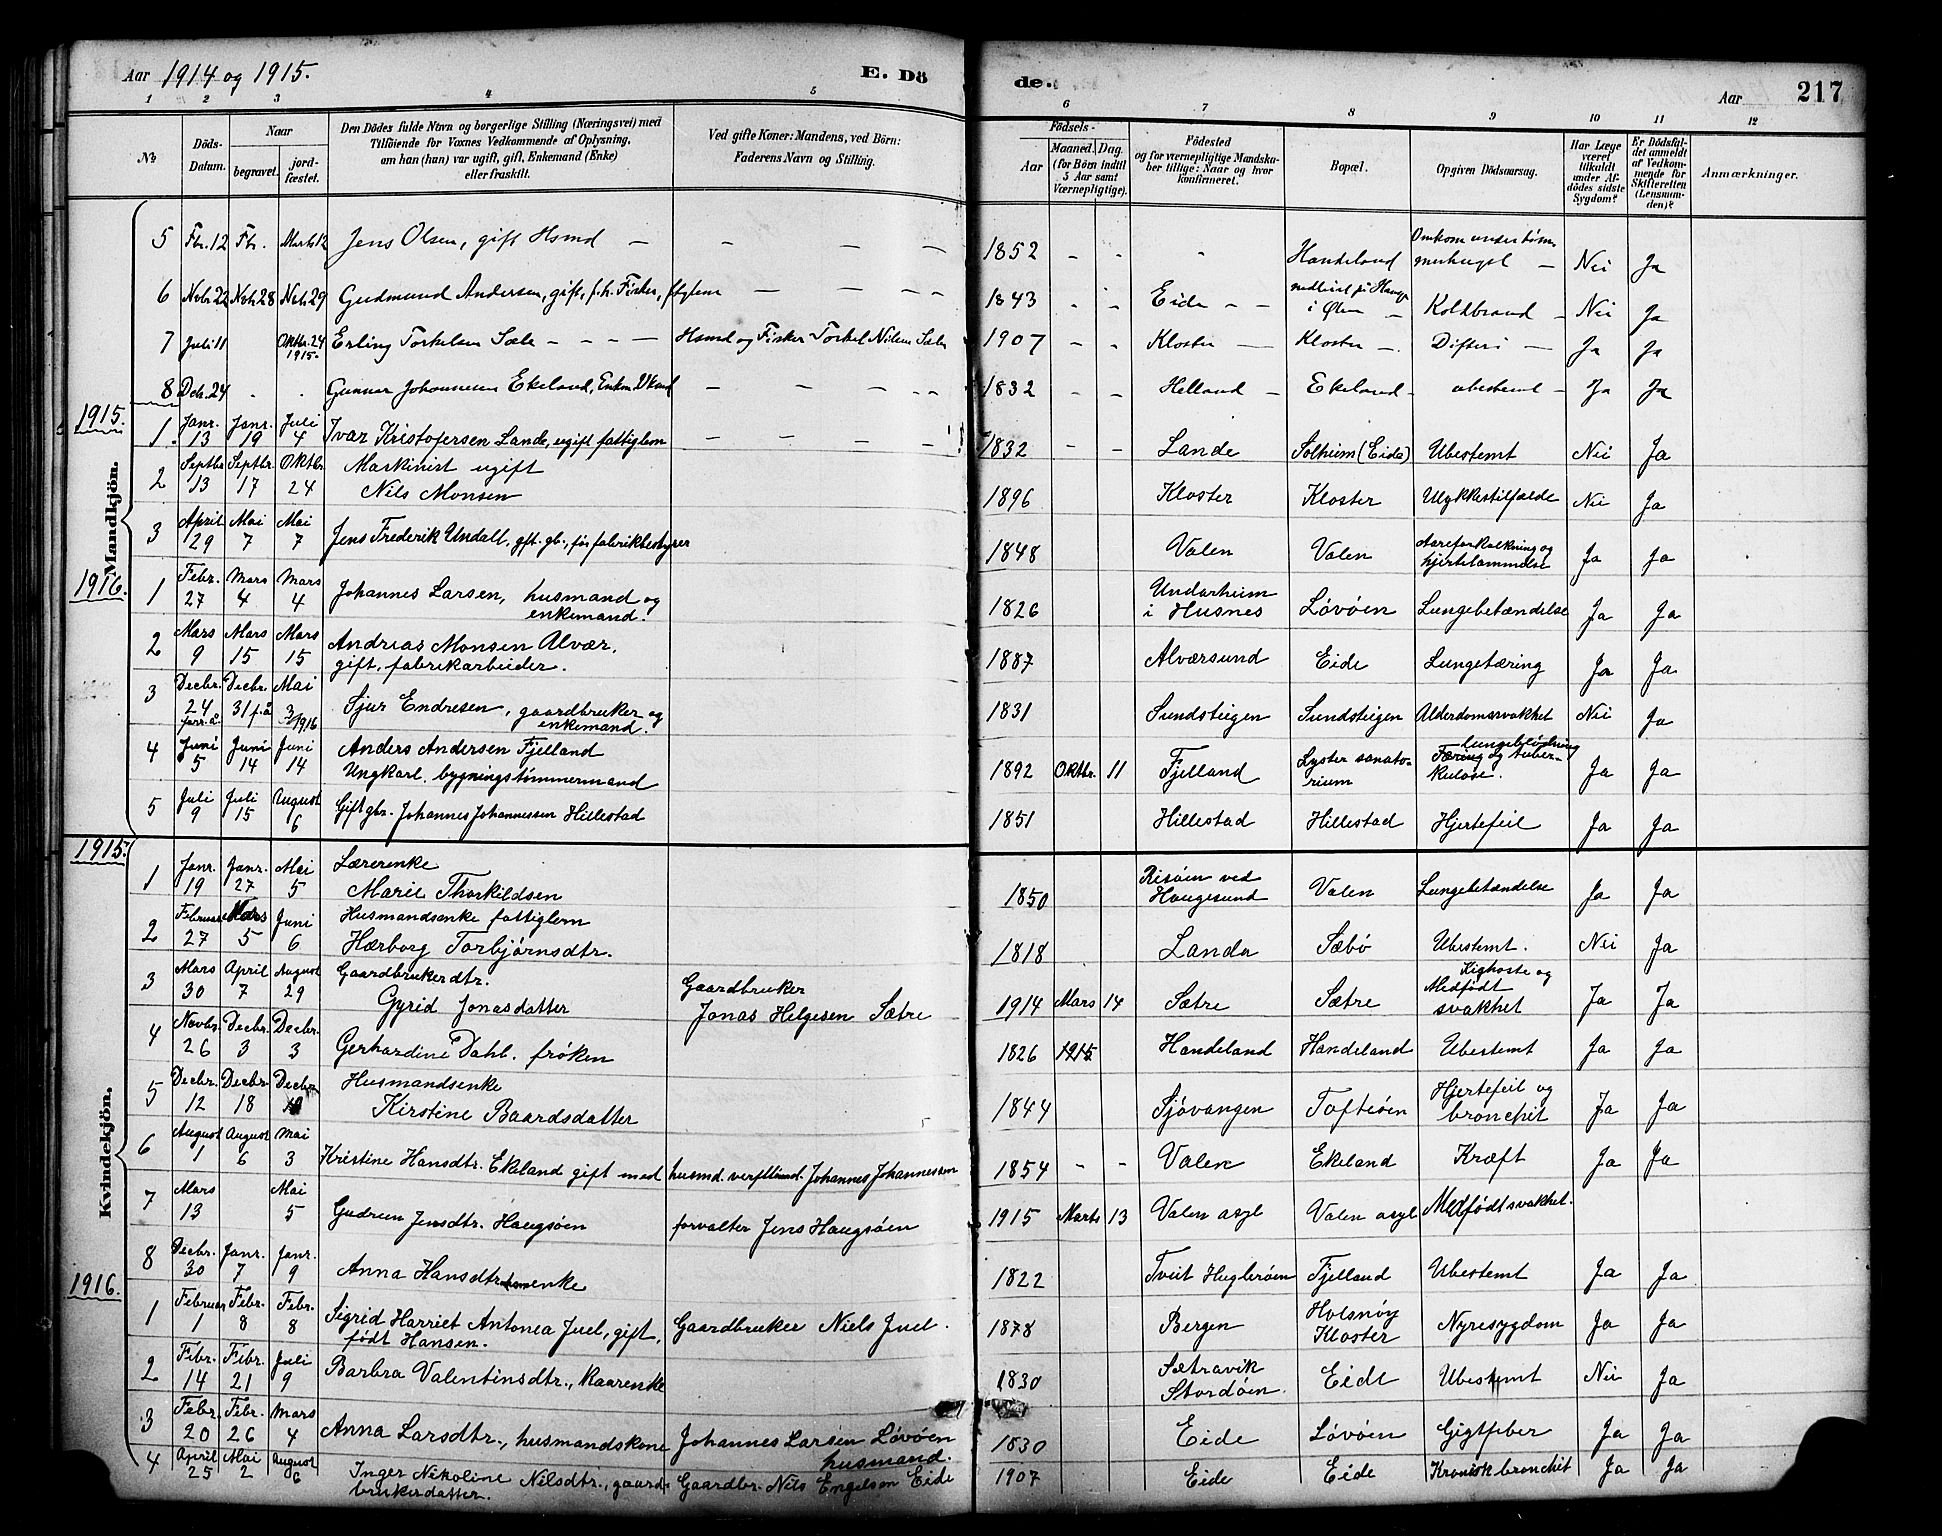 Aar 1914 og 1915. E. Dö de. Aar 217
1 2 3 4 5 6 7 8 9 10 11 12
No
Döds-Datum.
Naar
begravet.
jord-fæstet.
Den Dödes fulde Navn og borgerlige Stilling (Næringsvei) med
Tilföiende for Voxnes Vedkommende af Oplysning,
om han (hun) var ugift, gift, Enkemand (Enke)
eller fraskilt.
Ved gifte Koner: Mandens, ved Börn:
Faderens Navn og Stilling.
Födsels-
Aar
Maaned. Dag.
(for Börn indtil
5 Aar samt
Værnepligtige).
Födested
og for værnepligtige Mandska-
ber tillige: Naar og hvor
konfirmeret.
Bopæl.
Opgiven Dödsaarsag.
Har Læge
været
tilkaldt
under Af-
dödes sidste
Sygdom?
Er Dödsfal-
det anmeldt
af Vedkom-
mende for
Skifteretten
(Lensman-
den)?
Anmærkninger.
Mandkjön.
5 Fbr. 12 Fbr. Marts 12 Jens Olsen, gift Hsmd — — — — 1852 - - - Handeland Omkom under töm-
merhugst — Nei Ja
6 Novbr 22 Novbr 28 Novbr 29 Gudmund Andersen, gift, f.h. Fisker, — — — 1843 - - Eide — i Ølen — Koldbrand — Nei Ja
7 Juli 11 Oktbr. 24 1915. Erling Torkelsen Sæle — — — — Hsmd og Fisker Torkel Nilsen Sæle 1907 - - Kloster — Kloster —. Difteri — Ja Ja
8 Dcb. 24 . . Gunnar Johannesen Ekeland, Enkm. — — — — 1832 - - Helland — Ekeland - ubestemt — Ja Ja
1915.
1. Janr. 13 Janr. 19 Juli 4 Ivar Kristofersen Lande, ugift fattiglem — — — — 1832 - - Lande Solheim (Eide) Ubestemt Nei Ja
2 Septbr 13 Septbr. 17 Oktbr. 24 Maskinist ugift
Nils Monsen 1896 Kloster Kloster Ulykkestilfælde Nei Ja
3 April 29 Mai 7 Mai 7 Jens Frederik Undall, gft. gb., før fabrikbestyrer 1848 Valen Valen Aareforkalkning og
hjertelammelse Ja Ja
1916.
1 Febr. 27 Mars 4 Mars 4 Johannes Larsen, husmand og
enkemand. 1826 Undarheim
i Husnes Løvøen Lungebetændelse Ja Ja
2 Mars 9 Mars 15 Mars 15 Andreas Monsen Alvær,
gift, fabrikarbeider. 1887 Alværsund Eide Lungetæring Ja Ja
3 Decbr. 24 forr. å. Decbr. 31 f.å Mai 3/1916 Sjur Endresen, gaardbruker og
enkemand. 1831 Sundsteigen Sundsteigen Alderdomssvakhet Nei Ja
4 Juni 5 Juni 14 Juni 14 Anders Andersen Fjelland
Ungkarl. bygningstømmermand 1892 Oktbr. 11 Fjelland Lyster sanato-
rium lungeblødning
Tæring og tuber-
kulose. Ja Ja
5 Juli 9 Juli 15 August 6 Gift gbr. Johannes Johannessen Hillestad 1851 Hillestad Hillestad Hjertefeil Ja Ja
Kvindekjön.
1915.
1 Janr. 19 Janr. 27 Mai 5 Lærerenke
Marie Thorkildsen 1850 Risøen ved
Haugesund Valen Lungebetændelse Ja Ja
2 Februar 27 Mars 5 Juni 6 Husmandsenke fattiglem
Hærborg Torbjørnsdtr. 1818 Landa Sæbø Ubestemt. Nei Ja
3 Mars 30 April 7 August 29 Gaardbrukerdtr.
Gyrid Jonasdatter Gaardbruker
Jonas Helgesen Sætre 1914 Mars 14 Sætre Sætre Kighoste og
Medfødt
svakhet Ja Ja
4 Novbr. 26 Decbr. 3 Decbr. 3 Gerhardine Dahl. frøken 1826 1915 Handeland Handeland Ubestemt Ja Ja
5 Decbr. 12 Decbr. 18 Decbr. Husmandsenke
Kirstine Baardsdatter 1844 Sjøvangen Toftesen Hjertefeil og
bronchit Ja Ja
6 August 1 August 6 Mai 3 Kristine Hansdtr. Ekeland gift med husmd. Johannes Johannessen 1854 - - Valen Ekeland Kræft Ja Ja
7 Mars 13 Mai 5 Gudrun Jensdtr. Haugsøen forvalter Jens Haugsøen 1915 Marts 13 Valen asyl Valen asyl Medfødt svakhet.
8 Decbr. 30 Janr. 7 Janr. 9 Anna Hansdtr. enke 1822 Tveit Huglerøen Fjelland Ubestemt Ja Ja
1916.
1 Februar 1 Febr. 8 Febr. 8 Sigrid Harriet Antonea Juel, gift,
født Hansen. Gaardbruker Niels Juel. 1878 Bergen Holsnøy
Kloster Nyresygdom Ja Ja
2 Febr. 14 Febr. 21 Juli 9 Barbra Valentinsdtr., kaarenke 1830 Sætravik
Stordøen. Eide Ubestemt Nei Ja
3 Febr. 20 Febr. 26 Mars 4 Anna Larsdtr., husmandskone Johannes Larsen Løvøen
husmand. 1830 Eide Løvøen Gigtfeber Ja Ja
4 April 25 Mai 2 August 6 Inger Nikoline Nilsdtr., gaard-
brukerdatter. Gaardbr. Nils Engelsen Eide 1907 Eide Eide Kronisk bronchit Ja Ja